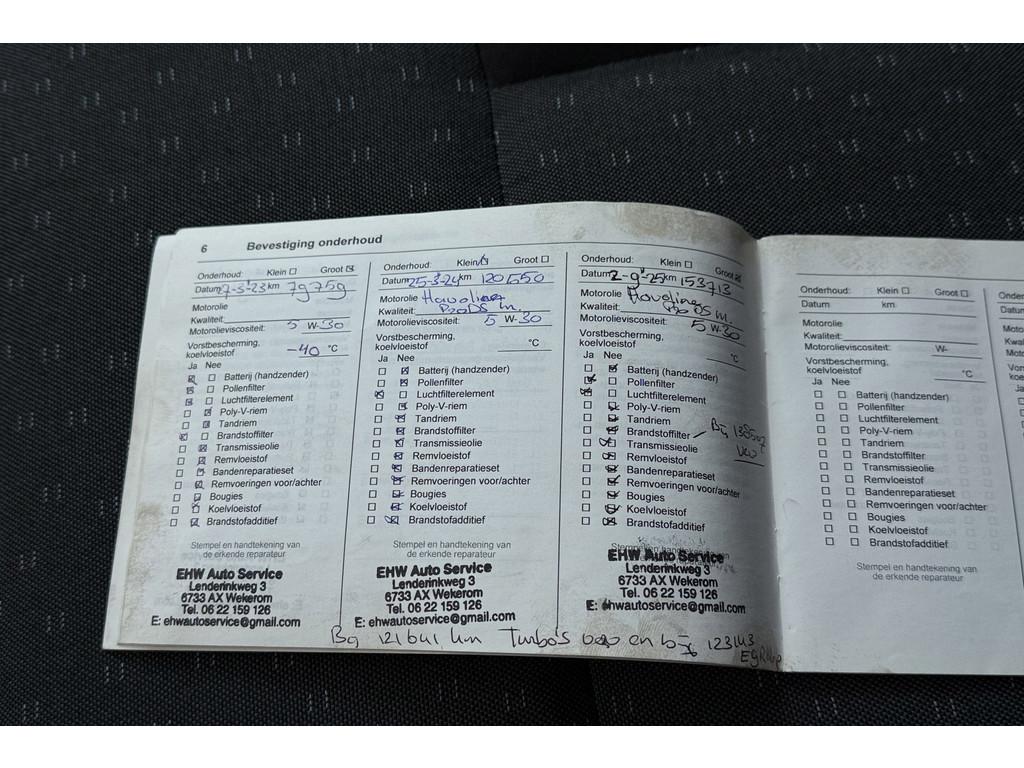 6 Bevestiging onderhoud
Onderhoud: Klein Groot
Datum 7-3-23 km 79759
Motorolie
Kwaliteit:
Motorolieviscositeit: 5 W-30
Vorstbescherming,
koelvloeistof -40 °C
Ja Nee
Batterij (handzender)
Pollenfilter
Luchtfilterelement
Poly-V-riem
Tandriem
Brandstoffilter
Transmissieolie
Remvloeistof
Bandenreparatieset
Remvoeringen voor/achter
Bougies
Koelvloeistof
Brandstofadditief
Stempel en handtekening van
de erkende reparateur
EHW Auto Service
Lenderinkweg 3
6733 AX Wekerom
Tel. 06 22 159 126
E: ehwautoservice@gmail.com
Onderhoud: Klein Groot
Datum 25-3-24 km 120550
Motorolie Havoline
Kwaliteit: ProDS m.
Motorolieviscositeit: 5 W-30
Vorstbescherming,
koelvloeistof °C
Ja Nee
Batterij (handzender)
Pollenfilter
Luchtfilterelement
Poly-V-riem
Tandriem
Brandstoffilter
Transmissieolie
Remvloeistof
Bandenreparatieset
Remvoeringen voor/achter
Bougies
Koelvloeistof
Brandstofadditief
Stempel en handtekening van
de erkende reparateur
EHW Auto Service
Lenderinkweg 3
6733 AX Wekerom
Tel. 06 22 159 126
E: ehwautoservice@gmail.com
Onderhoud: Klein Groot
Datum 2-9-25 km 153713
Motorolie Havoline
Kwaliteit: ProDS m.
Motorolieviscositeit: 5 W-30
Vorstbescherming,
koelvloeistof °C
Ja Nee
Batterij (handzender)
Pollenfilter
Luchtfilterelement
Poly-V-riem
Tandriem
Brandstoffilter
Transmissieolie
Remvloeistof
Bandenreparatieset
Remvoeringen voor/achter
Bougies
Koelvloeistof
Brandstofadditief
Bij
EHW Auto Service
Lenderinkweg 3
6733 AX Wekerom
Tel. 06 22 159 126
E: ehwautoservice@gmail.com
Bij 121641 km Turbo's en 123143
Onderhoud: Klein Groot
Datum km
Motorolie
Kwaliteit:
Motorolieviscositeit: W-
Vorstbescherming,
koelvloeistof °C
Ja Nee
Batterij (handzender)
Pollenfilter
Luchtfilterelement
Poly-V-riem
Tandriem
Brandstoffilter
Transmissieolie
Remvloeistof
Bandenreparatieset
Remvoeringen voor/achter
Bougies
Koelvloeistof
Brandstofadditief
Stempel en handtekening van
de erkende reparateur